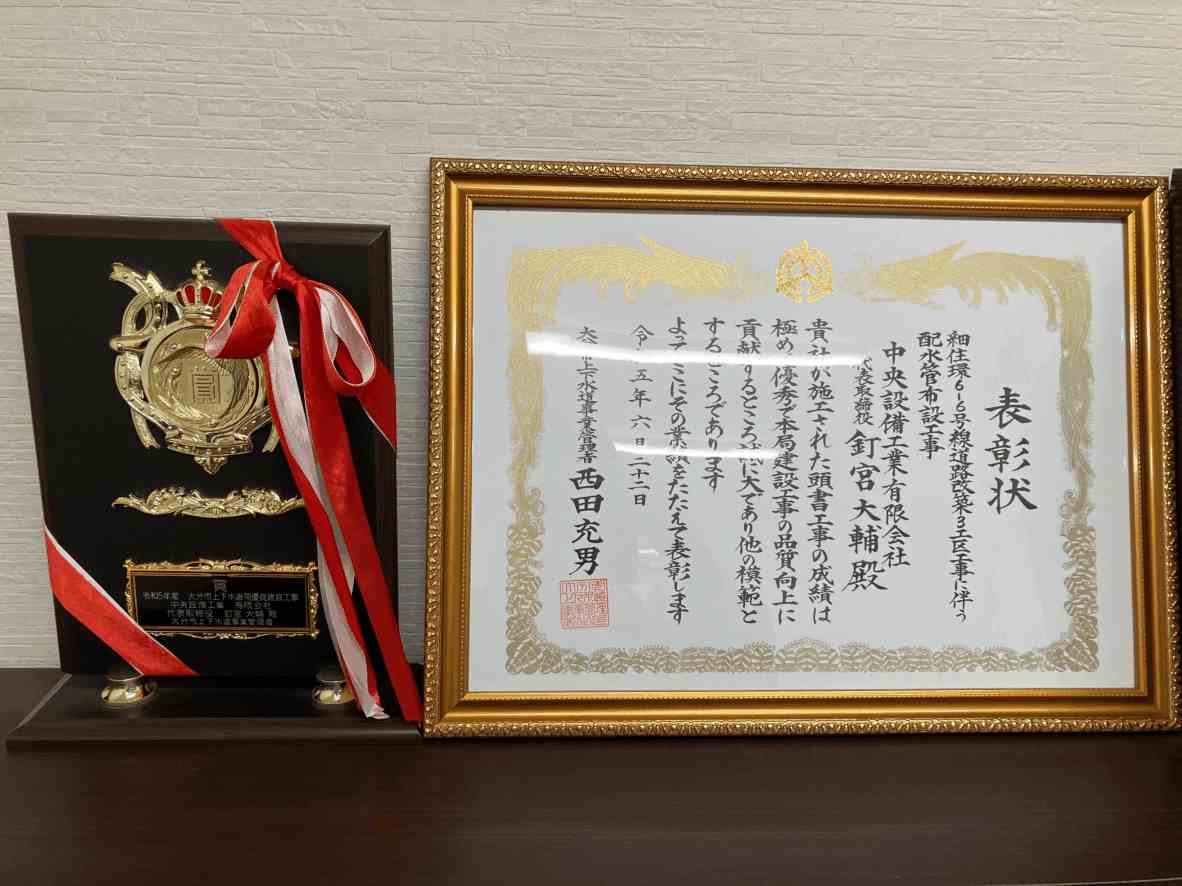 表彰状
細住環6-6号線道路改築3工区工事に伴う
配水管布設工事
中央設備工業有限会社
代表取締役 釘宮大輔殿
貴社が施工された頭書工事の成績は
極めて優秀で本局建設工事の品質向上に
貢献するところ誠に大であり他の模範と
するところであります
よってここにその業績をたたえて表彰します
令和五年六月二十二日
大分市上下水道事業管理者 西田充男
賞
賞
令和5年度 大分市上下水道局優良建設工事
中央設備工業 有限会社
代表取締役 釘宮 大輔 殿
大分市上下水道事業管理者